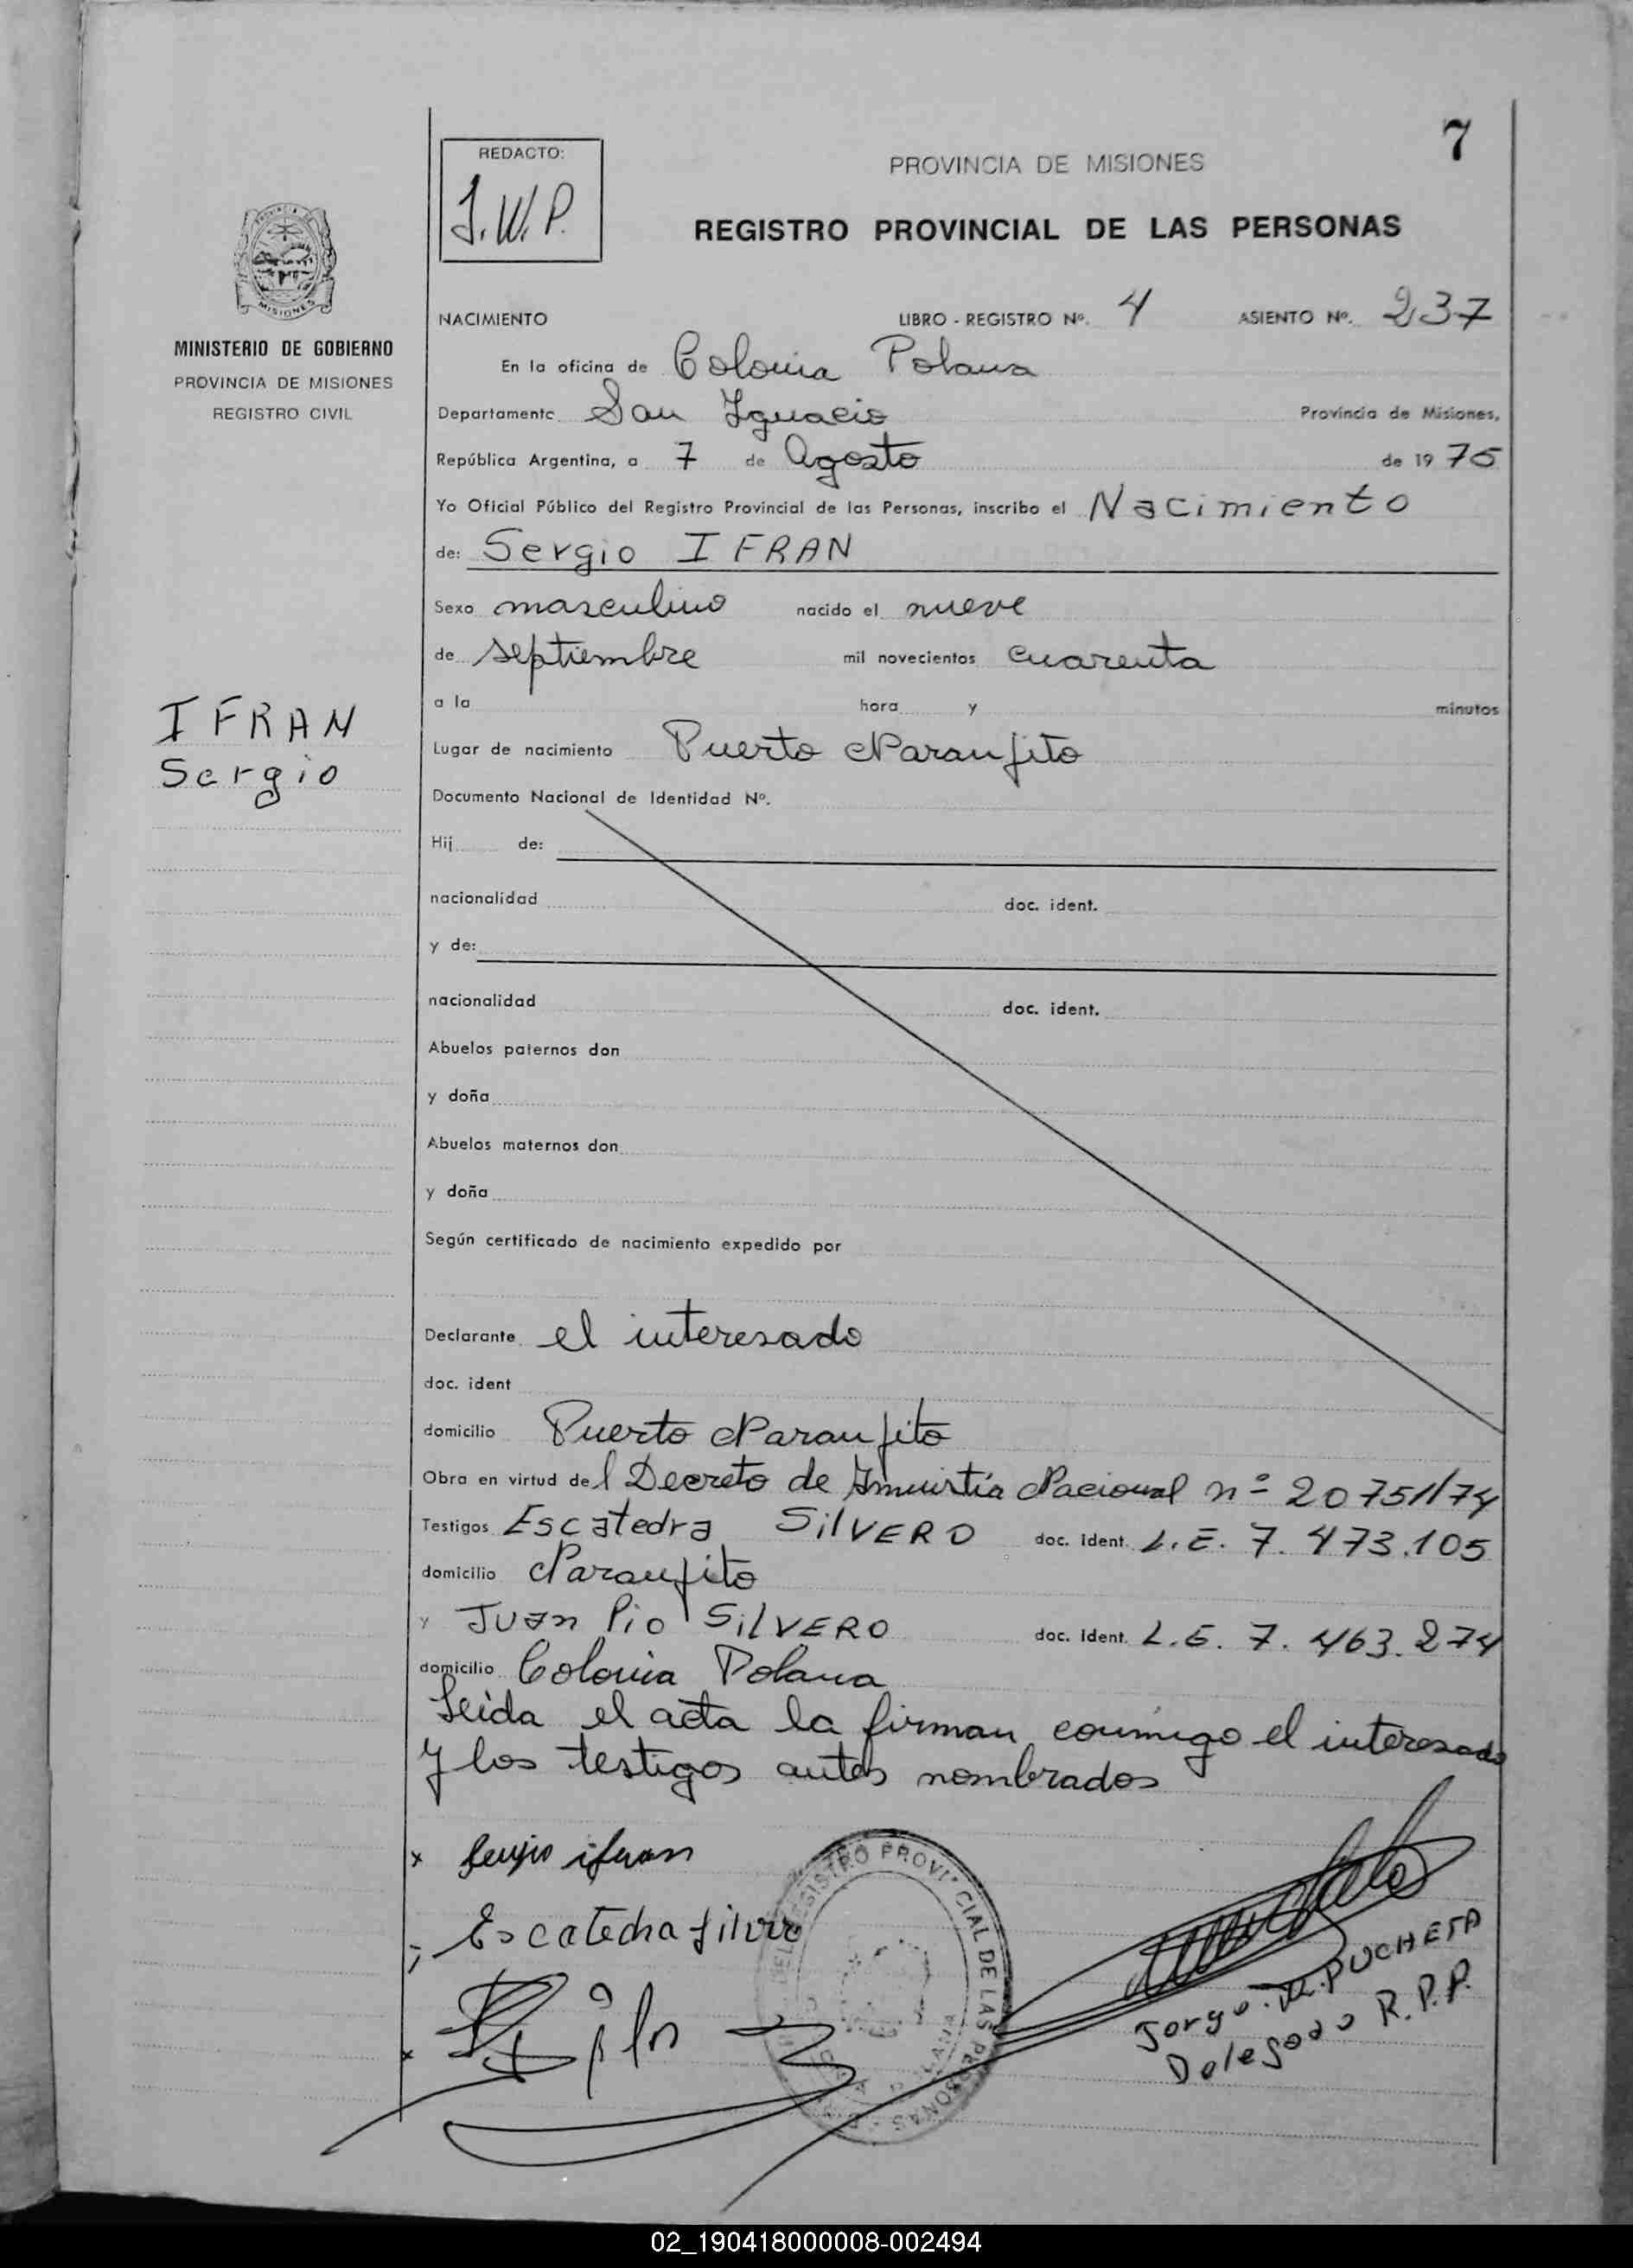 7
REDACTO:
J.W.P.
PROVINCIA DE MISIONES
REGISTRO PROVINCIAL DE LAS PERSONAS
MISIONES
MINISTERIO DE GOBIERNO
PROVINCIA DE MISIONES
REGISTRO CIVIL
NACIMIENTO LIBRO - REGISTRO Nº. 4 ASIENTO Nº. 237
En la oficina de Colonia Polana
Departamento San Ignacio Provincia de Misiones,
República Argentina, a 7 de Agosto de 1975
Yo Oficial Público del Registro Provincial de las Personas, inscribo el Nacimiento
de: Sergio IFRAN
Sexo masculino nacido el nueve
de septiembre mil novecientos cuarenta
a la hora y minutos
IFRAN
Sergio
Lugar de nacimiento Puerto Naranjito
Documento Nacional de Identidad Nº.
Hij de:
nacionalidad doc. ident.
y de:
nacionalidad doc. ident.
Abuelos paternos don
y doña
Abuelos maternos don
y doña
Según certificado de nacimiento expedido por
Declarante el interesado
doc. ident
domicilio Puerto Naranjito
Obra en virtud del Decreto de Amnistía Nacional nº 20751/74
Testigos Escatedra SILVERO doc. ident. L.E. 7.473.105
domicilio Naranjito
y Juan Pio SILVERO doc. ident. L.E. 7.463.274
domicilio Colonia Polana
Leida el acta la firman conmigo el interesado
y los testigos antes nombrados
x Sergio ifran
Escatedra Silvero
DEL REGISTRO PROVINCIAL DE LAS PERSONAS
Jorge W. PUCHETA
Delegado R.P.P.
02_190418000008-002494